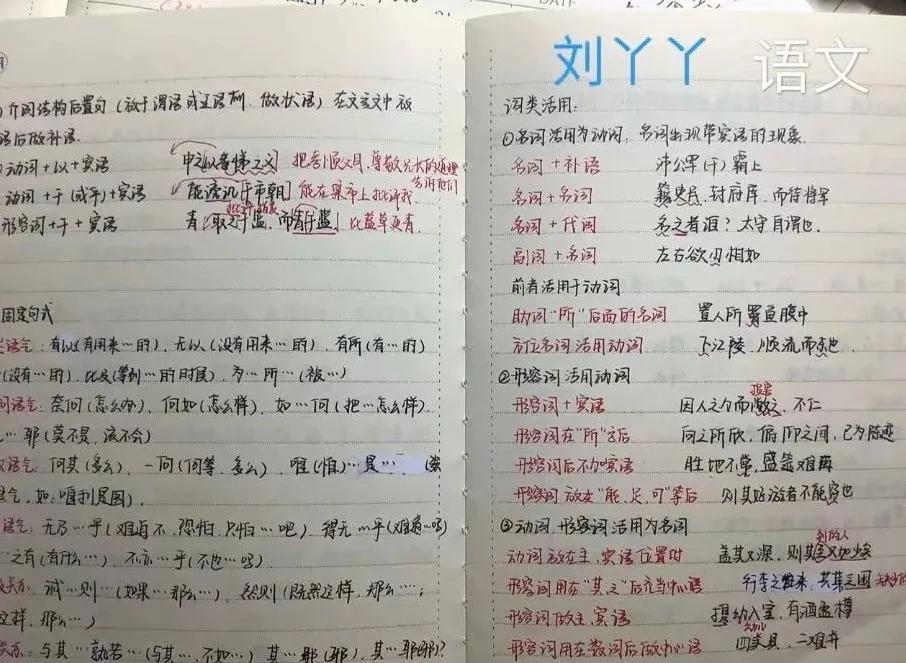 DATE
刘丫丫 语文
介词结构后置句(放于谓语或主语前,做状语)在文言文中放
语后做补语.
动词+以+宾语 申之以孝悌之义 把孝悌父母,尊敬兄长的道理
告诉他们
动词+于(或乎)+宾语 能谤讥于市朝 能在集市上批评我
形容词+于+宾语 青,取之于蓝,而青于蓝 比蓝草更青.
固定句式
语气:有以(有用来…的),无以(没有用来…的),有所(有…的)
(没有…的),比及(等到…的时候),为…所…(被…)
问语气:奈何(怎么办),何如(怎么样),如…何(把…怎么样).
…耶(莫不是,该不会)
语气:何其(多么),一何(何等,多么),唯(惟)…是…
语气,如:唯利是图).
语气:无乃…乎(难道不,恐怕,只怕…吧) 得无…乎(难道…吗)
…之有(有什么…) 不亦…乎(不也…吗)
关系:诚…则…(如果…那么…),然则(既然这样,那么…;
这样,那么…)
关系:与其…孰若…(与其…,不如…) 其…耶(邪),其…耶(邪)?
词类活用:
①名词活用为动词,名词出现带宾语的现象.
名词+补语 沛公军(于)霸上
名词+名词 籍吏民,封府库,而待将军
名词+代词 名之者谁?太守自谓也.
副词+名词 左右欲刃相如
前者活用于动词
助词“所”后面的名词 置人所罾鱼腹中
方位名词活用动词 下江陵,顺流而东也.
②形容词活用动词
形容词+宾语 因人之力而敝之,不仁
形容词在“所”字后 向之所欣,俯仰之间,已为陈迹
形容词后不加宾语 胜地不常,盛筵难再
形容词放在“能、足、可”等后 则其好游者不能穷也
③动词、形容词活用为名词
动词放在主、宾语位置时 盖其又深,则其至又加少矣
到的人
形容词用在“其、之”后充当中心语 行李之往来,共其乏困
形容词做主、宾语 携幼入室,有酒盈樽
形容词用在数词后做中心语 四美具,二难并